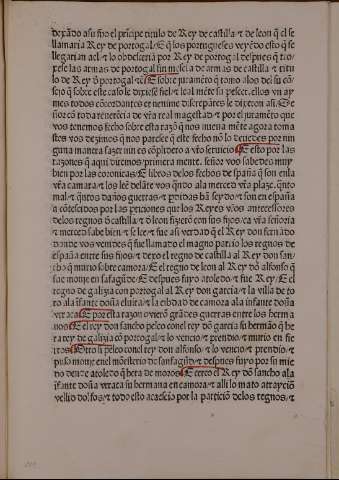 dexãdo asu fijo el prĩcipe titulo de Rey de castilla ⁊ de leon q̃ el se
llamaria Rey de portogal ⁊ E q̃ los portugueses veyẽdo esto q̃ se
llegarian a el ⁊ lo obedesceriã por Rey de portogal despues q̃ tro
xese las armas de portogal sin mescla de armas de castilla ⁊ titu
lo de Rey d̃ portogal ⁊c̃ E sobre juramẽto q̃ tomo alos del su cõ
sejo q̃ sobre este caso le dixiesẽ fiel ⁊ leal mẽte su pescer. ellos vn ay
mes todos cõcordantes et nenime discrepãte le dixeron asi. Se
ñor cõ toda reuerẽcia de vr̃a real magestad ⁊ por el juramẽto que
vos tenemos fecho sobre esta razõ q̃ nos nueua mẽte agora toma
stes vos dezimos q̃ nos paresce q̃ este fecho nõ lo deuedes por nin
guna manera fazer nin es cõplidero a vr̃o seruicio E esto por las
razones q̃ aqui diremos primera mente. señor vos sabedes muy
bien por las coronicas ⁊ E libros delos fechos de españa q̃ son enla
vr̃a camara ⁊ los leẽ delãte vos q̃ndo ala merced vr̃a plaze. q̃nto
mal ⁊ q̃ntos daños guerras ⁊ pdidas hã seydo ⁊ son en españa
acõtescidos por las pticiones que los Reyes vr̃os antecessores
delos regnos d̃ castilla ⁊ d̃ leon fizierõ con sus fijos ⁊ ca vr̃a señoria
⁊ merced sabe bien ⁊ se lee ⁊ fue asi verdad q̃ el Rey don fernado
donde vos vendes q̃ fue llamado el magno partio los regnos de
españa entre sus fijos ⁊ dexo el regno de castilla al Rey don san-
cho q̃ murio sobre çamora ⁊ E el regno de leon al Rey dõ alfonso q̃
fue monje en safagũ ⁊ E despues fuyo a toledo ⁊ fue Rey ⁊ E el
regno de galizia con portogal al Rey don garcia ⁊ la villa de to
ro ala ifante doña eluira ⁊ la cibdad de çamora ala infante doña
vrraca E por esta razon ouierõ grãdes guerras entre los herma
nos E el rey don sancho peleo conel rey dõ garcia su hermão q̃ he
ra rey de galizia cõ portogal ⁊ lo vencio ⁊ prendio ⁊ murio en fie
rros Otrosi peleo conel rey don alfonso ⁊ lo vencio ⁊ prendio ⁊
puso monje enel mõsterio de sanfagũd ⁊ despues fuyo por su mie
do dende a toledo q̃ hera de moros E cerco el Rey dõ sancho ala
ifante doña vrraca su hermana en çamora ⁊ alli lo mato a trayciõ
vellido dolfos ⁊ todo esto acaescio por la particiõ delos regnos ⁊